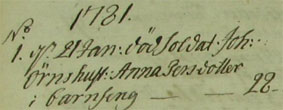 1781.
No
1. d. 21 Jan: död Soldat: Joh:
Örns hust: Anna Pers dotter
i barnseng — — 28.